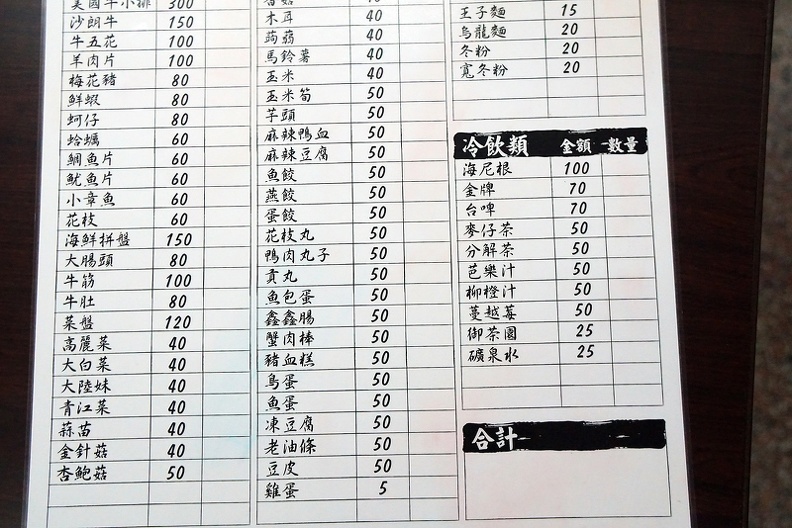 美國牛小排 300
沙朗牛 150
牛五花 100
羊肉片 100
梅花豬 80
鮮蝦 80
蚵仔 80
蛤蠣 60
鯛魚片 60
魷魚片 60
小章魚 60
花枝 60
海鮮拼盤 150
大腸頭 80
牛筋 100
牛肚 80
菜盤 120
高麗菜 40
大白菜 40
大陸妹 40
青江菜 40
蒜苗 40
金針菇 40
杏鮑菇 50
木耳 40
蒟蒻 40
馬鈴薯 40
玉米 40
玉米筍 50
芋頭 50
麻辣鴨血 50
麻辣豆腐 50
魚餃 50
燕餃 50
蛋餃 50
花枝丸 50
鴨肉丸子 50
貢丸 50
魚包蛋 50
鑫鑫腸 50
蟹肉棒 50
豬血糕 50
鳥蛋 50
魚蛋 50
凍豆腐 50
老油條 50
豆皮 50
雞蛋 5
王子麵 15
烏龍麵 20
冬粉 20
寬冬粉 20
冷飲類 金額 數量
海尼根 100
金牌 70
台啤 70
麥仔茶 50
分解茶 50
芭樂汁 50
柳橙汁 50
蔓越莓 50
御茶園 25
礦泉水 25
合計